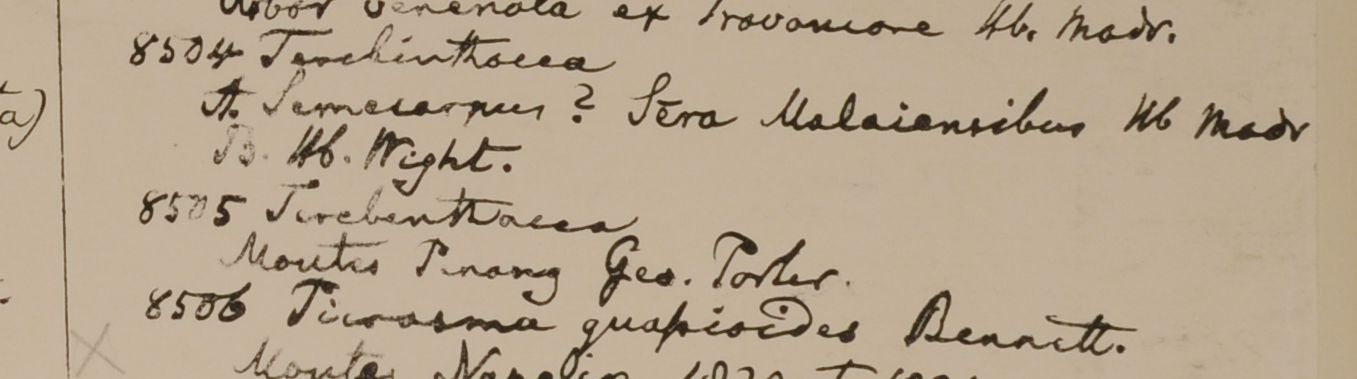 Arbor venenata ex Travancore Hb. Madr.
8504 Terebinthacea
A. Semecarpus? Sēra Malaiensibus Hb Madr
ta)
B. Hb. Wight.
8505 Terebinthacea
Montes Pinang Geo. Porter.
8506 Picrasma quassioides Bennett.
Montes Napalia